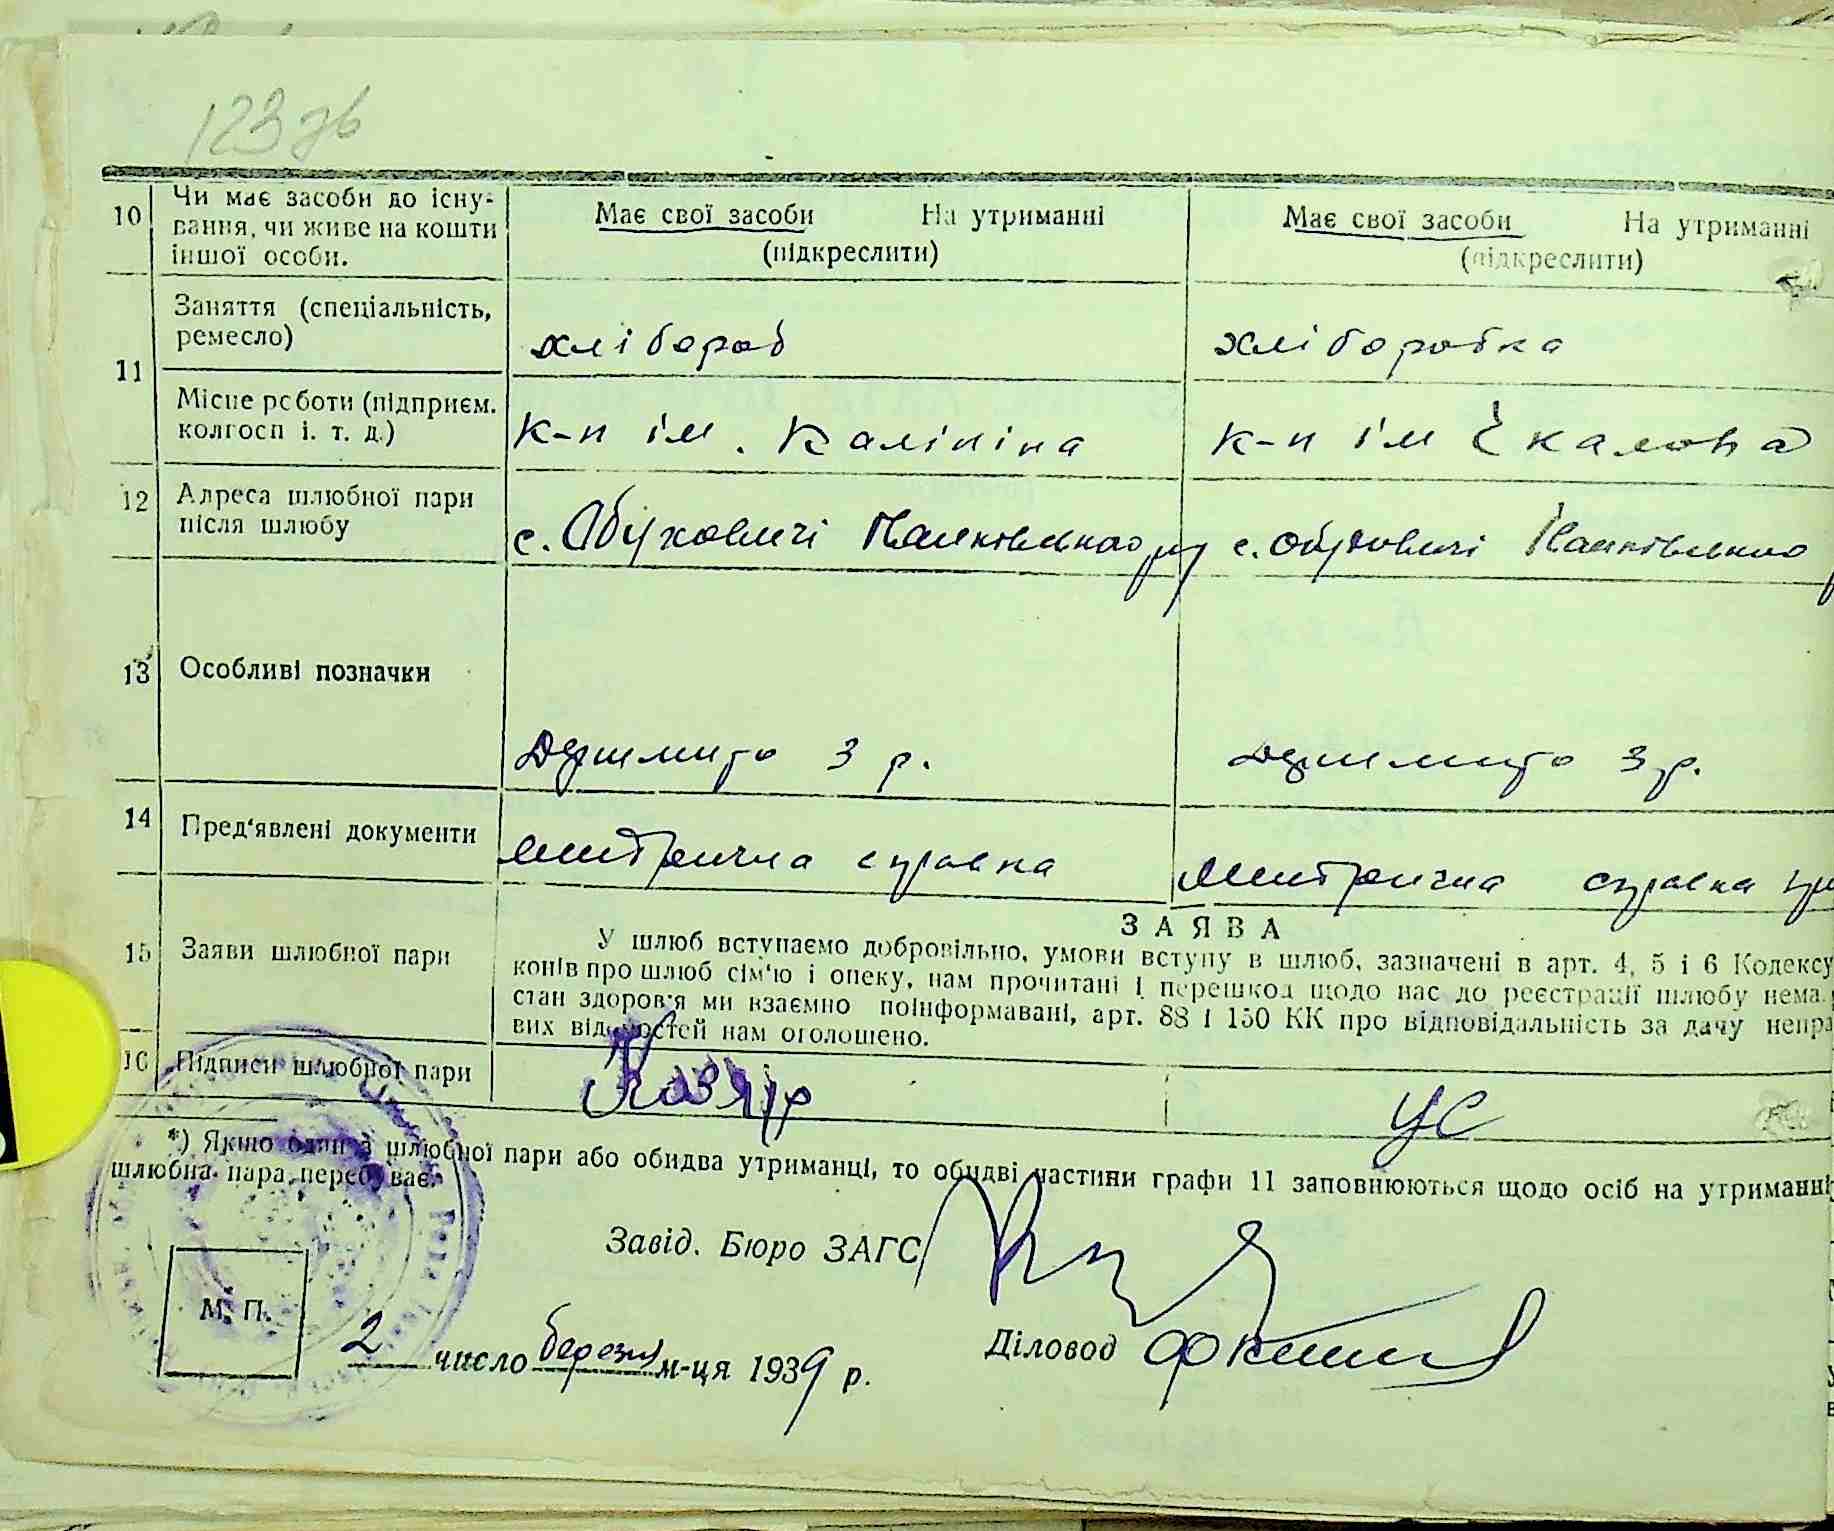 123 зв
10 Чи має засоби до існу-
вання, чи живе на кошти
іншої особи.
Має свої засоби На утриманні
(підкреслити)
Має свої засоби На утриманні
(підкреслити)
11 Заняття (спеціальність,
ремесло)
хлібороб
хліборобка
Місце роботи (підприєм.
колгосп і. т. д.)
к-п ім. Калініна
к-п ім Чкалова
12 Адреса шлюбної пари
після шлюбу
с. Обуховичі
с. Обуховичі
13 Особливі позначки
3 р.
3 р.
14 Пред'явлені документи
метрична справка
метрична справка
15 Заяви шлюбної пари
ЗАЯВА
У шлюб вступаємо добровільно, умови вступу в шлюб, зазначені в арт. 4, 5 і 6 Кодексу
конів про шлюб сім'ю і опеку, нам прочитані і перешкод щодо нас до реєстрації шлюбу нема.
стан здоров'я ми взаємно поінформавані, арт. 88 і 150 КК про відповідальність за дачу непра
вих відомостей нам оголошено.
16 Підписи шлюбної пари
УС
*) Якщо один з шлюбної пари або обидва утриманці, то обидві частини графи 11 заповнюються щодо осіб на утриманні
шлюбна пара перебуває.
Завід. Бюро ЗАГС
М. П.
Діловод
2 число березня м-ця 1939 р.